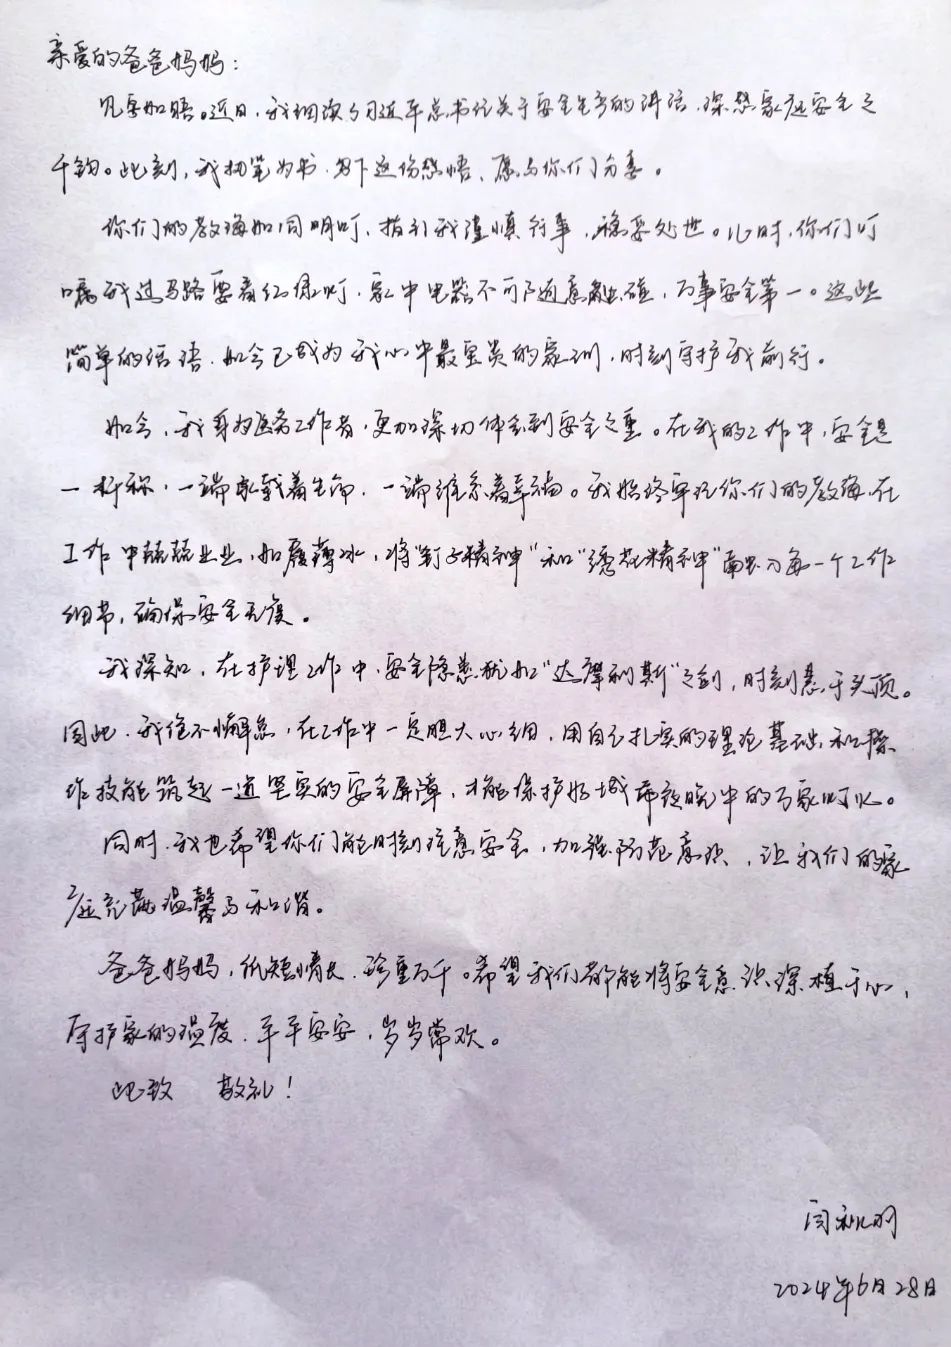 亲爱的爸爸妈妈：
见字如晤。近日，我细读习近平总书记关于安全生产的讲话，深感家庭安全之
千钧。此刻，我执笔为书，写下这份感悟、愿与你们分享。
你们的教诲如同明灯，指引我谨慎行事，稳妥处世。儿时，你们叮
嘱我过马路要看红绿灯，家中电器不可随意触碰，万事安全第一。这些
简单的话语，如今已成为我心中最宝贵的家训，时刻守护我前行。
如今，我身为医务工作者，更加深切体会到安全之重。在我的工作中，安全是
一杆称，一端承载着生命，一端维系着幸福。我始终牢记你们的教诲，在
工作中兢兢业业，如履薄冰，将“钉子精神”和“绣花精神”融入每一个工作
细节，确保安全无虞。
我深知，在护理工作中，安全隐患犹如“达摩利斯”之剑，时刻悬于头顶。
因此，我绝不懈怠，在工作中一定胆大心细，用自己扎实的理论基础和操
作技能筑起一道坚实的安全屏障，才能保护好城市夜晚中的万家灯火。
同时，我也希望你们能时刻注意安全，加强防范意识，让我们的家
庭充满温馨与和谐。
爸爸妈妈，纸短情长，珍重万千。希望我们都能将安全意识深植于心，
守护家的温度，平平安安，岁岁常欢。
此致 敬礼！
闫
2024年6月28日